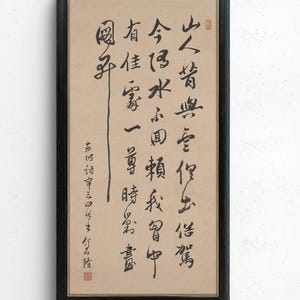 山人昔與雲俱出俗駕
今隨水不回賴我胸中
有佳處一尊時對畫
圖開
東坡詩